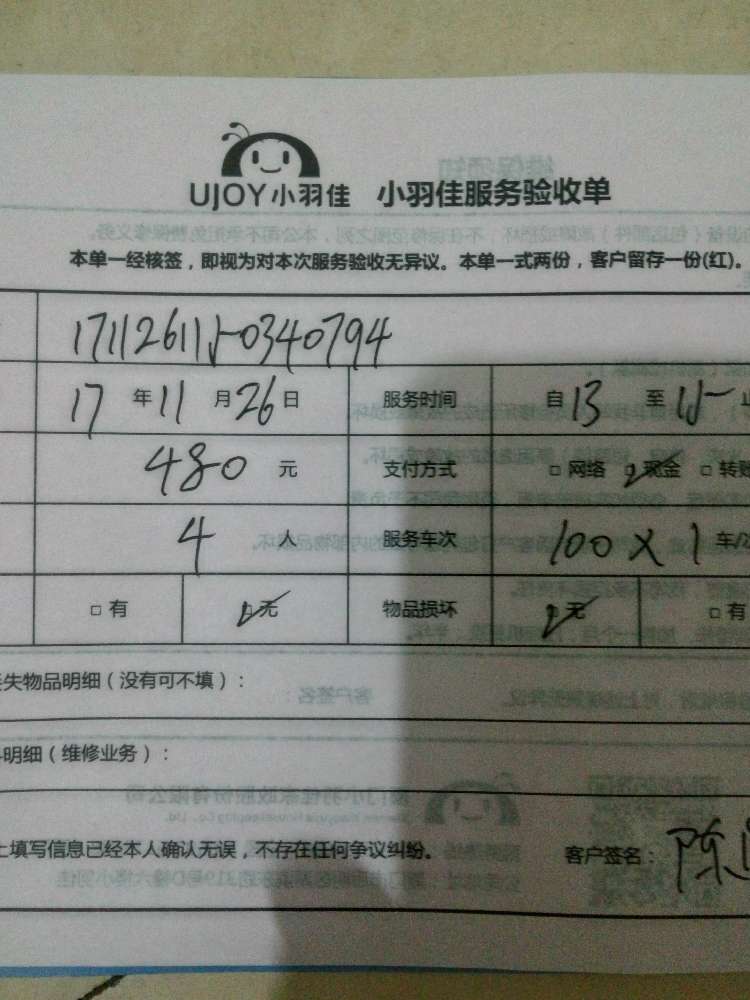 UJOY小羽佳 小羽佳服务验收单
本单一经核签，即视为对本次服务验收无异议。本单一式两份，客户留存一份(红)。
17112611150340794
17 年 11 月 26 日 服务时间 自 13 至 15 止
480 元 支付方式 □ 网络 ☑ 现金 □ 转账
4 人 服务车次 100 X 1 车/
□ 有 ☑ 无 物品损坏 ☑ 无 □ 有
失物品明细（没有可不填）：
明细（维修业务）：
上填写信息已经本人确认无误，不存在任何争议纠纷。 客户签名： 陈